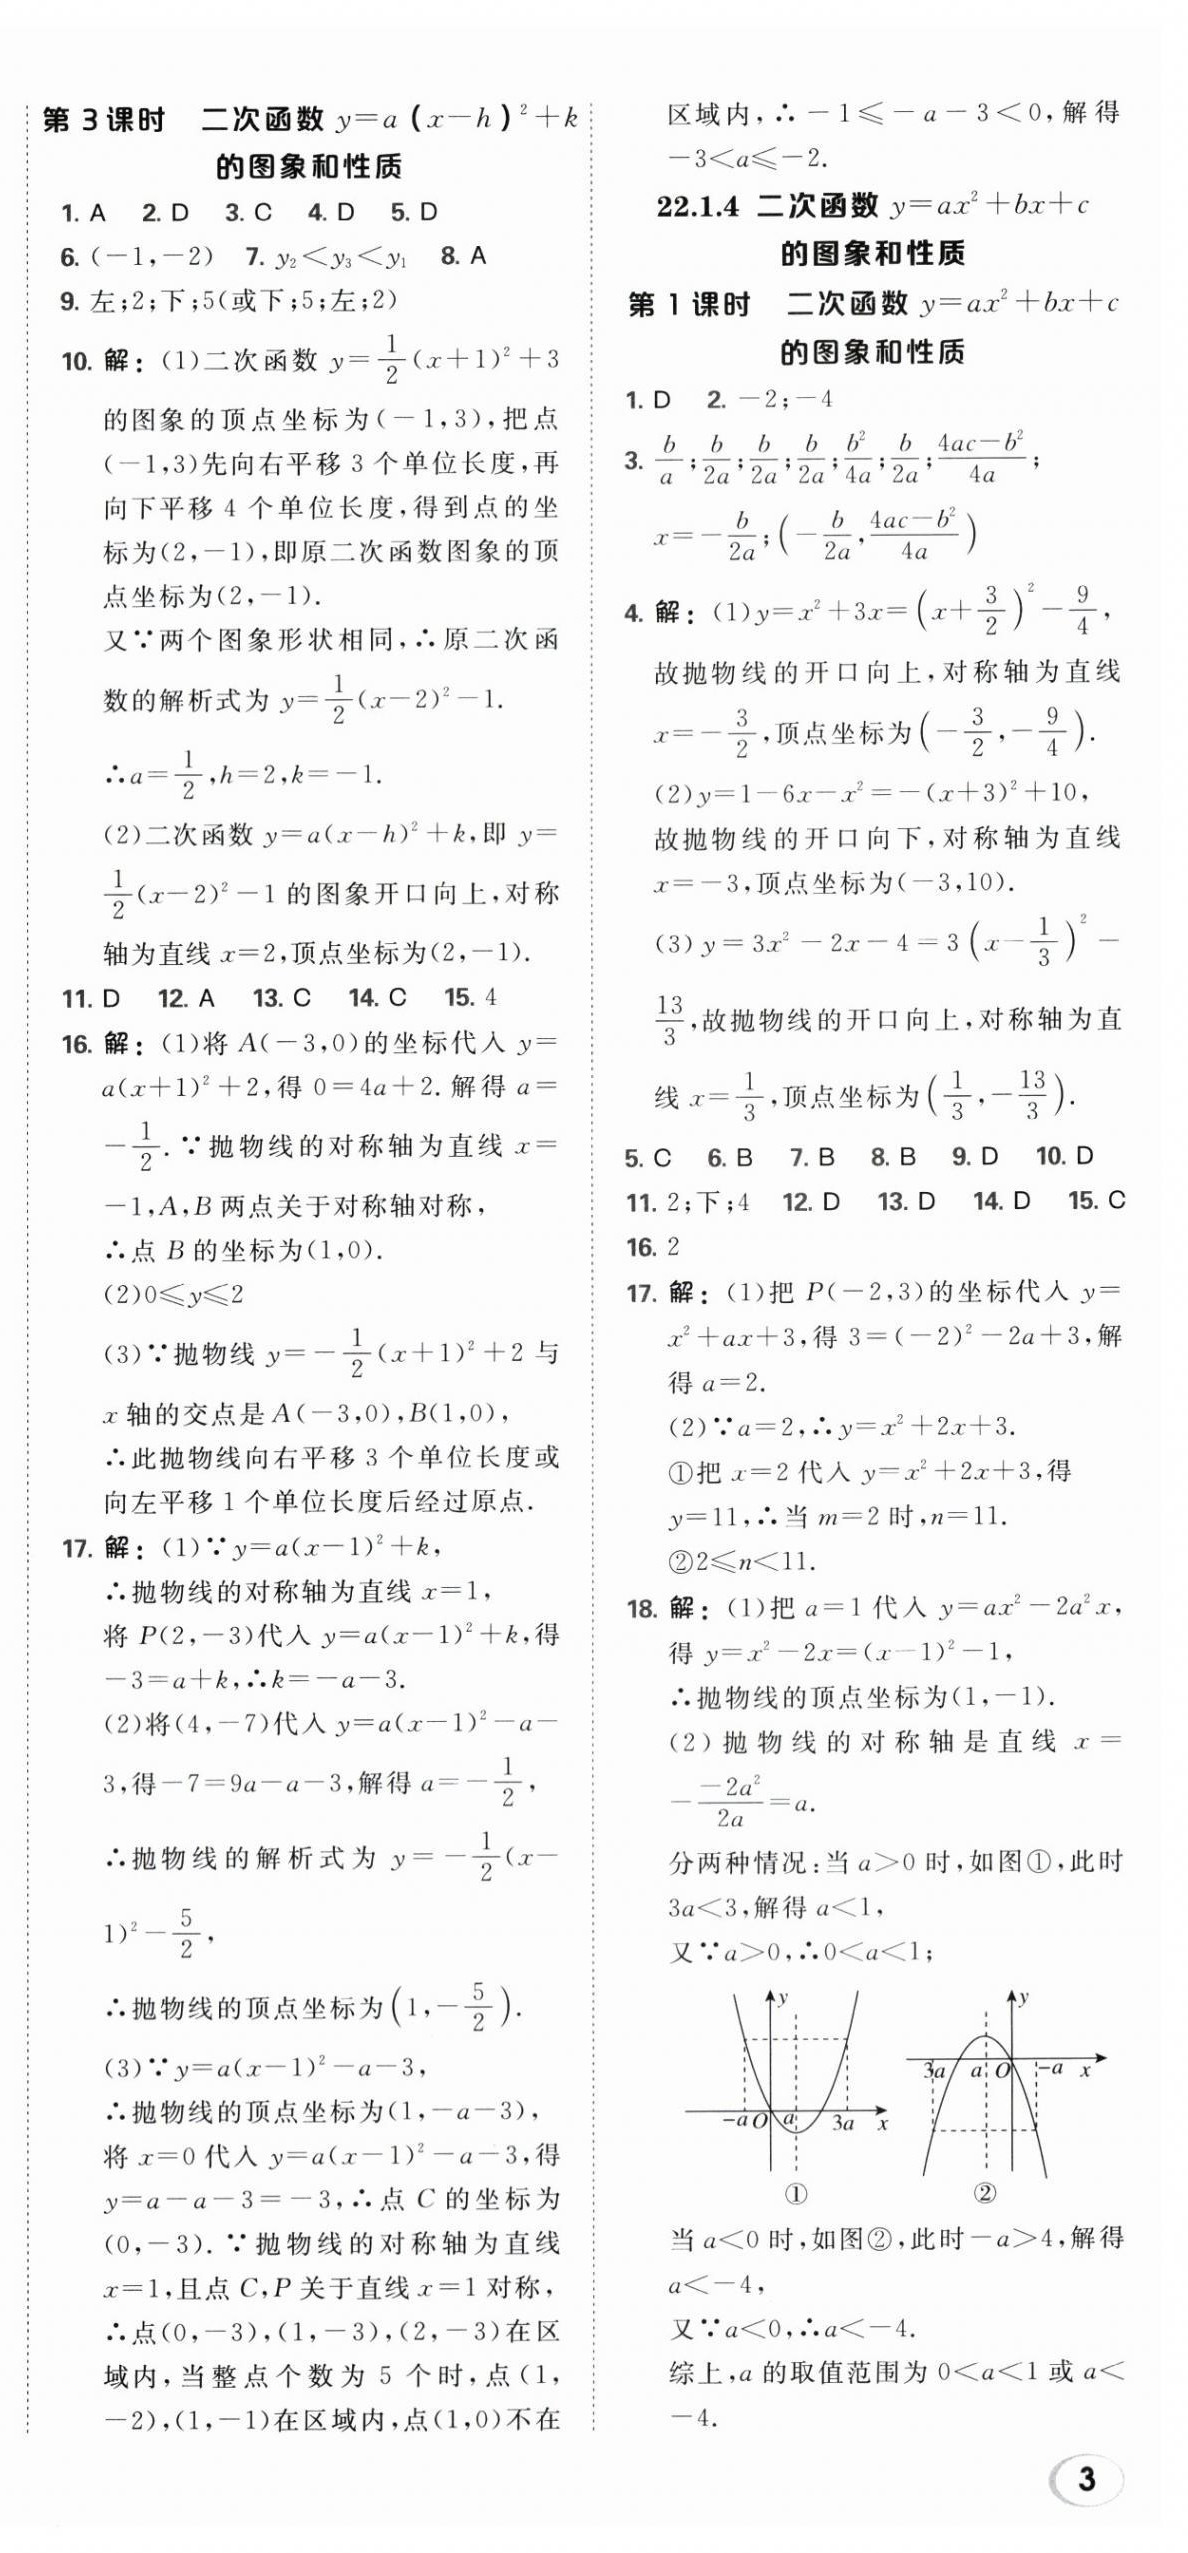 第3课时 二次函数 y=a(x-h)²+k
的图象和性质
1. A 2. D 3. C 4. D 5. D
6. (-1,-2) 7. y₂<y₃<y₁ 8. A
9. 左;2;下;5(或下;5;左;2)
10. 解:(1)二次函数 y=1/2(x+1)²+3
的图象的顶点坐标为(-1,3),把点
(-1,3)先向右平移 3 个单位长度,再
向下平移 4 个单位长度,得到点的坐
标为(2,-1),即原二次函数图象的顶
点坐标为(2,-1).
又∵两个图象形状相同,∴原二次函
数的解析式为 y=1/2(x-2)²-1.
∴a=1/2,h=2,k=-1.
(2)二次函数 y=a(x-h)²+k,即 y=
1/2(x-2)²-1 的图象开口向上,对称
轴为直线 x=2,顶点坐标为(2,-1).
11. D 12. A 13. C 14. C 15. 4
16. 解:(1)将 A(-3,0)的坐标代入 y=
a(x+1)²+2,得 0=4a+2. 解得 a=
-1/2. ∵抛物线的对称轴为直线 x=
-1,A,B 两点关于对称轴对称,
∴点 B 的坐标为(1,0).
(2)0⩽y⩽2
(3)∵抛物线 y=-1/2(x+1)²+2 与
x 轴的交点是 A(-3,0),B(1,0),
∴此抛物线向右平移 3 个单位长度或
向左平移 1 个单位长度后经过原点.
17. 解:(1)∵y=a(x-1)²+k,
∴抛物线的对称轴为直线 x=1,
将 P(2,-3)代入 y=a(x-1)²+k,得
-3=a+k,∴k=-a-3.
(2)将(4,-7)代入 y=a(x-1)²-a-
3,得-7=9a-a-3,解得 a=-1/2,
∴抛物线的解析式为 y=-1/2(x-
1)²-5/2,
∴抛物线的顶点坐标为(1,-5/2).
(3)∵y=a(x-1)²-a-3,
∴抛物线的顶点坐标为(1,-a-3),
将 x=0 代入 y=a(x-1)²-a-3,得
y=a-a-3=-3,∴点 C 的坐标为
(0,-3). ∵抛物线的对称轴为直线
x=1,且点 C,P 关于直线 x=1 对称,
∴点(0,-3),(1,-3),(2,-3)在区
域内,当整点个数为 5 个时,点(1,
-2),(1,-1)在区域内,点(1,0)不在
区域内,∴-1⩽-a-3<0,解得
-3<a⩽-2.
22.1.4 二次函数 y=ax²+bx+c
的图象和性质
第1课时 二次函数 y=ax²+bx+c
的图象和性质
1. D 2. -2;-4
3. b/a;b/2a;b/2a;b/2a;b²/4a;b/2a;(4ac-b²)/4a;
x=-b/2a;(-b/2a,(4ac-b²)/4a)
4. 解:(1)y=x²+3x=(x+3/2)²-9/4,
故抛物线的开口向上,对称轴为直线
x=-3/2,顶点坐标为(-3/2,-9/4).
(2)y=1-6x-x²=-(x+3)²+10,
故抛物线的开口向下,对称轴为直线
x=-3,顶点坐标为(-3,10).
(3)y=3x²-2x-4=3(x-1/3)²-
13/3,故抛物线的开口向上,对称轴为直
线 x=1/3,顶点坐标为(1/3,-13/3).
5. C 6. B 7. B 8. B 9. D 10. D
11. 2;下;4 12. D 13. D 14. D 15. C
16. 2
17. 解:(1)把 P(-2,3)的坐标代入 y=
x²+ax+3,得 3=(-2)²-2a+3,解
得 a=2.
(2)∵a=2,∴y=x²+2x+3.
①把 x=2 代入 y=x²+2x+3,得
y=11,∴当 m=2 时,n=11.
②2⩽n<11.
18. 解:(1)把 a=1 代入 y=ax²-2a²x,
得 y=x²-2x=(x-1)²-1,
∴抛物线的顶点坐标为(1,-1).
(2)抛物线的对称轴是直线 x=
-(-2a²)/2a=a.
分两种情况:当 a>0 时,如图①,此时
3a<3,解得 a<1,
又∵a>0,∴0<a<1;
y
-a O a 3a x
①
y
3a a O -a x
②
当 a<0 时,如图②,此时-a>4,解得
a<-4,
又∵a<0,∴a<-4.
综上,a 的取值范围为 0<a<1 或 a<
-4.
3